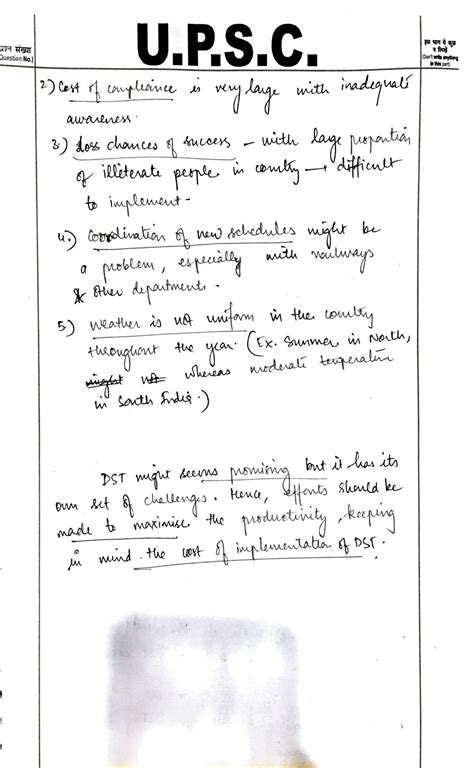 U.P.S.C.
प्रश्न संख्या
(Question No.)
इस भाग में कुछ
न लिखें
(Don't write anything
in this part)
2) Cost of compliance is very large with inadequate
awareness.
3) Loss chances of success - with large propontion
of illiterate people in country → difficult
to implement -
4.) Coordination of new schedules might be
a problem, especially with railways
& other departments.
5) Weather is not uniform in the country
throughout the year. (Ex. Summer in North,
might not whereas moderate temperature
in South India.)
DST might seems promising but it has its
own set of challenges. Hence, efforts should be
made to maximise the productivity, keeping
in mind the cost of implementation of DST.